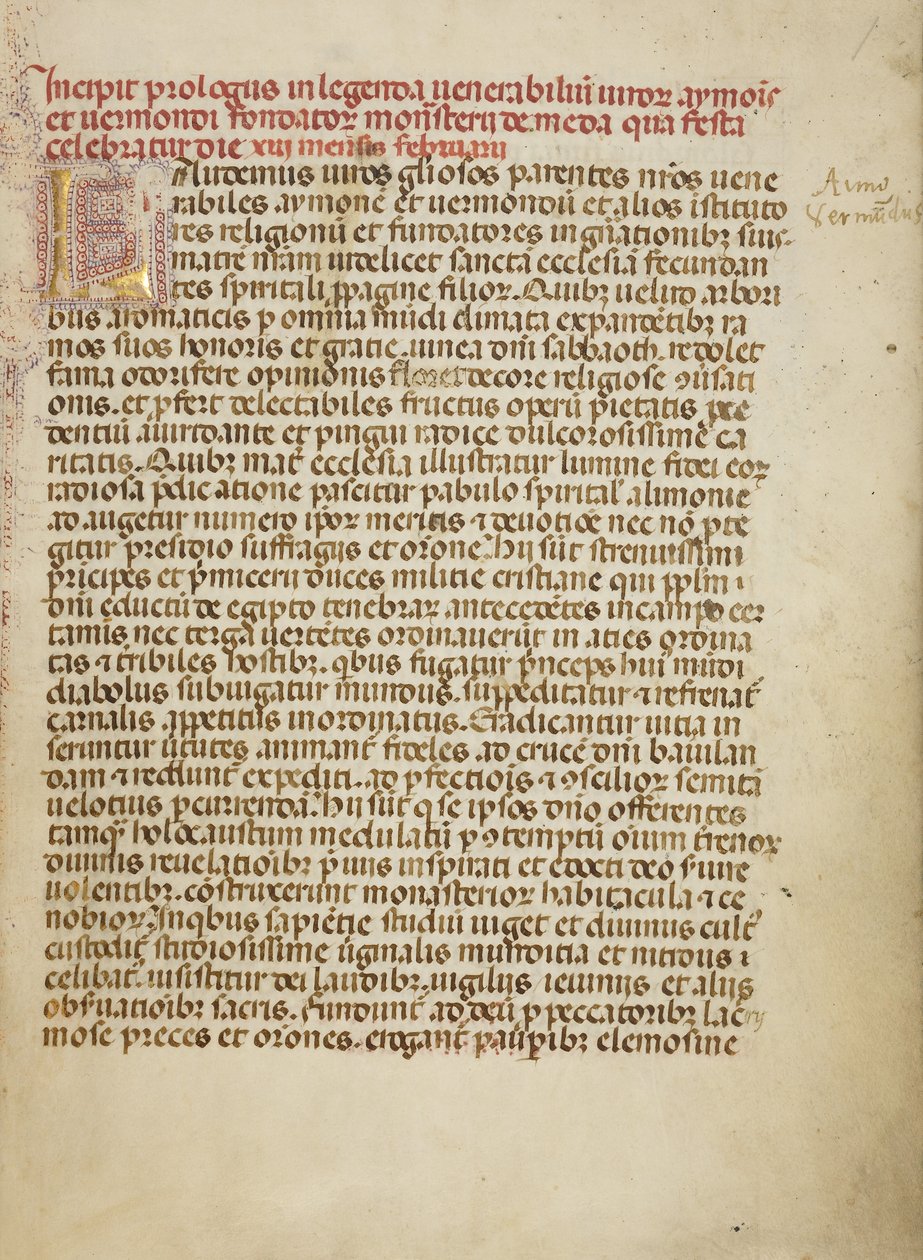 Incipit prologus in legenda uenerabiliū uiroꝝ aymoīs
et uermondi fondatoꝝ monr̄sterij de meda qua festa
celebratur die xiij mensis februarij
Laudemus uiros gliosos parentes nr̄os uene
rabiles aymonē et uermondū et alios īstituto
res religionū et fundatores in gn̄ationibꝫ suis.
matrē nr̄am uidelicet sanctā ecclesiā fecundan
tes spiritali ꝓpagine filioꝝ. Quibꝫ uelud arbori
bus aromaticis ꝑ omnia mūdi climata expandētibꝫ ra
mos suos honoris et gratie. uinea dn̄i sabbaoth. redolet
fama odorifere opinionis floret decore religiose ꝯuersati
onis. et ꝓfert delectabiles fructus operū pietatis
dentiū a uirdante et pingui radice dulcorosissime ca
ritatis. Quibꝫ mat̄ ecclesia illustratur lumine fidei eoꝝ
radiosa p̄dicatione pascitur pabulo spiritaɫ alimonie
ad augetur numero ip̄oꝝ meritis ⁊ deuotiōe nec nō ꝓte
gitur presidio suffragijs et or̄one. Hij sūt strenuissimi
prīcipes et p̄micerij duces militie cristiane qui pplm̄
dn̄i eductū de egipto tenebraꝝ antecedētes in campo cer
taminis nec terga uertētes ordinauerūt in acies ordina
tas ⁊ tr̄ibiles hostibꝫ. qbus fugatur p̄nceps huiꝰ mūdi
diabolus subiugatur mundus. suppeditatur ⁊ refrenat̄
carnalis appetitus inordinatus. Eradicantur uitia in
seruntur ūtutes animant̄ fideles ad crucē dn̄i baiulan
dam ⁊ reddunt̄ expediti. ad ꝑfectiōis ⁊ ꝯsilioꝝ semitā
uelotius ꝑcurrendā. Hij sūt q se ip̄sos dn̄o offerentes
tamqꝫ holocaustum medulatū ꝑ ꝯtemptū oīum t̄renoꝝ
diuinis reuelatiōibꝫ p̄uiis inspirati et edocti deo s̄uire
uolentibꝫ. cōstruxerunt monasterioꝝ habitacula ⁊ ce
nobioꝝ. In qbus sapiētie studiū uiget et diuinus cultꝰ
custodit̄ studiosissime ūginalis munditia et nitidus
celibatꝰ. insistitur dei laudibꝫ. uigilijs ieiunijs et alijs
obs̄uatiōibꝫ sacris. Fundunt̄ ad deū ꝓ peccatoribꝫ lacry
mose preces et or̄ones. erogant̄ paupibꝫ elemosine
Aimo
Vermūdus